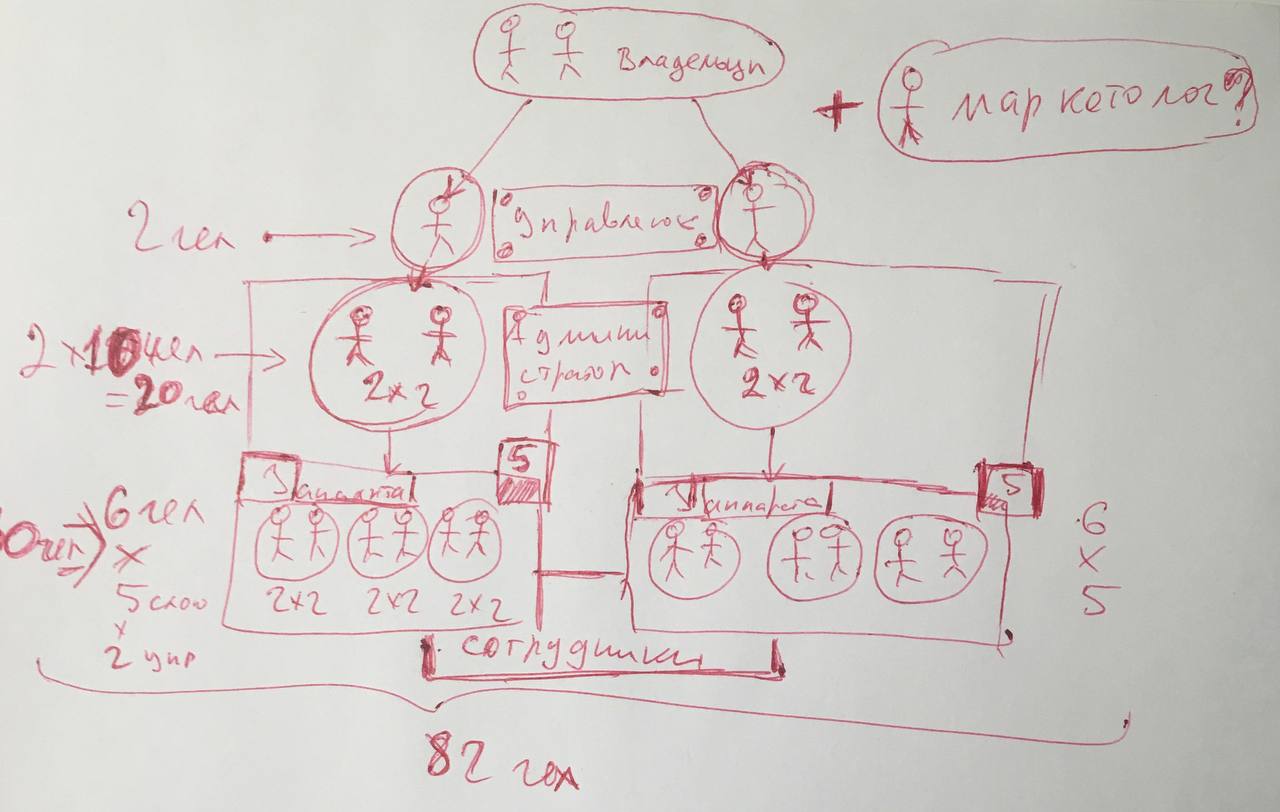 Владельцы
+ маркетолог?
2 чел
Управленец
2 x 10 чел
= 20 чел
2x2
Админи
стратор
2x2
5
3 аппарата
5
3 аппарата
0 чел
6 чел
x
5
x
2 упр
2x2 2x2 2x2
6
x
5
сотрудники
82 чел